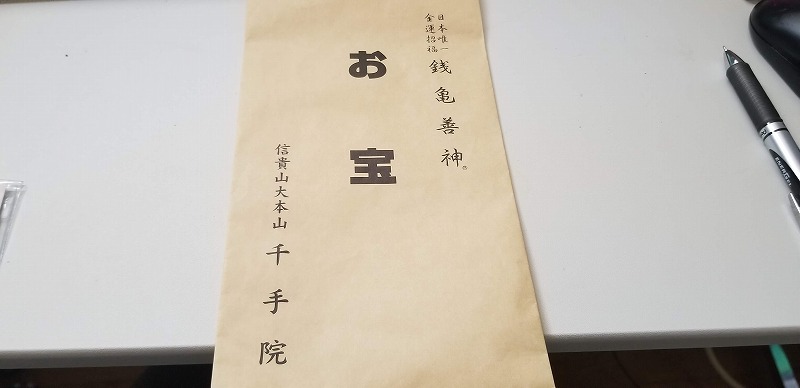 日本唯一
金運招福
銭亀善神
お宝
信貴山大本山 千手院
ENERGEL